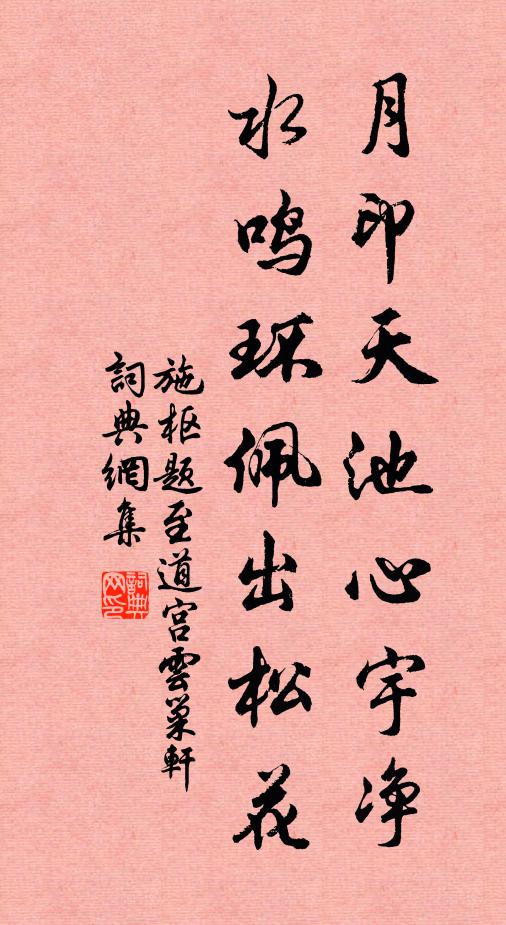 月印天池心宇净
水鸣环佩出松花
施枢题至道宫雲巢軒
詞典網集
詞典网印